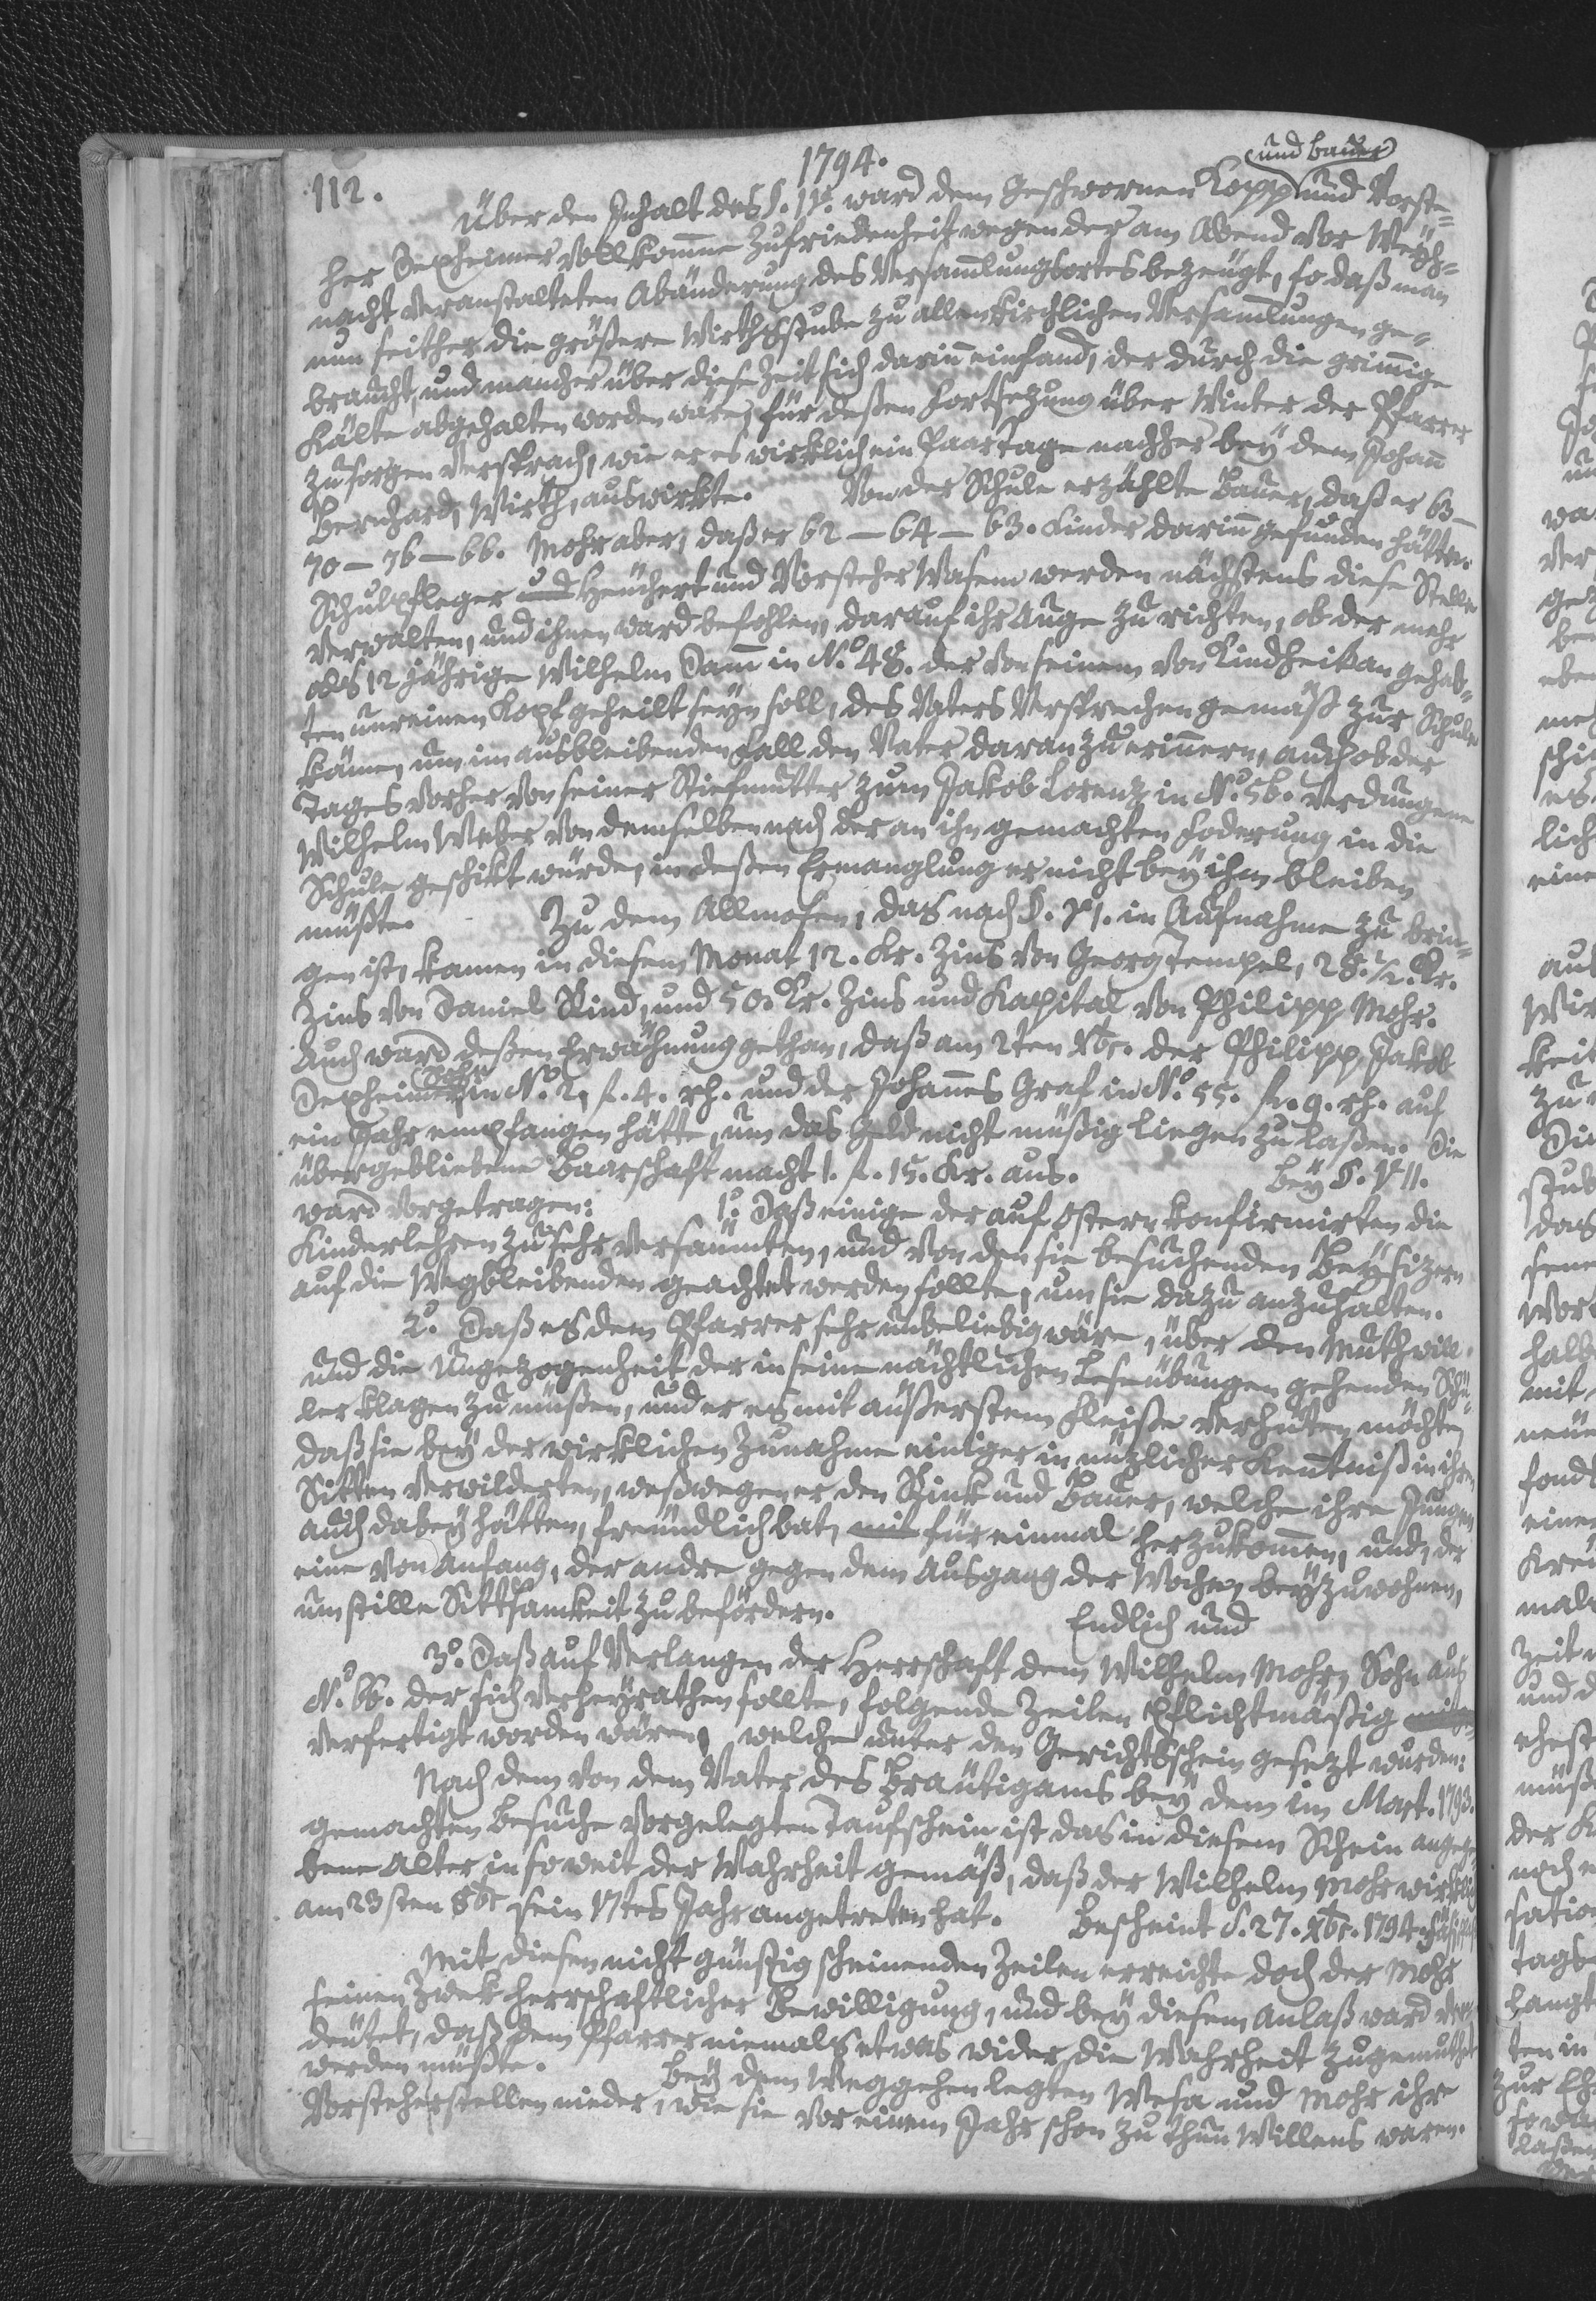 112.
1794.
und Bauer
Über den Inhalt des §. IV. ward dem Geschwornen Kopp und Vorste-
her Dexheimer vollkomme Zufriedenheit wegen der am Abend vor Weyh-
nacht veranstalteten Abänderung des Versammlungsortes bezeugt, so daß man
nun seither die größere Wirthsstube zu allen kirchlichen Versammlungen ge-
braucht, und mancher über diese Zeit sich darinn einfand, der durch die grimmige
Kälte abgehalten worden wäre, für deßen Fortsezung über Winter der Pfarrer
zu sorgen versprach, wie er es wirklich ein Paar Tage nachher bey dem Johann
Bernhard, Wirth, auswirkte. Von der Schule erzählte Bauer, daß er 63 —
70 — 76 — 66. Mohr aber, daß er 62 — 64 — 63. Kinder darinn gefunden hätte.
Schulpfleger und Heuchert und Vorsteher Wasem werden nächstens diese Stelle
verwalten, und ihnen ward befohlen, darauf ihr Auge zu richten, ob der mehr
als 12 jährige Wilhelm Damm in N.° 48. der von seinem von Kindheit an gehab-
ten unreinen Kopf geheilt seyn soll, des Vaters Versprechen gemäß zur Schule
käme, um im ausbleibenden Fall den Vater daran zu erinnern, auch ob der
Tages vorher von seiner Stiefmutter zum Jakob Lorenz in N.° 56. verdungene
Wilhelm Weber von demselben nach der an ihn gemachten Foderung in die
Schule geschikt würde, in deßen Ermanglung er nicht bey ihm bleiben
müßte. Zu dem Allmosen, das nach §. VI. in Aufnahme zu brin-
gen ist, kamen in diesem Monat 12. Kr. Zins von Georg Tempel, 28. 1/2. Kr.
Zins von Daniel Rind, und 50. Kr. Zins und Kapital von Philipp Mohr.
Auch ward deßen Erwähnung gethan, daß am 2ten Xbr. der Philipp Jakob
Dexheimer in N.° 2, f. 4. rh. und der Johannes Graf in N.° 55. f. 9. rh. auf
ein Jahr empfangen hätte, um das Geld nicht müßig liegen zu laßen. Die
übergebliebene Baarschaft macht 1. f. 15. Kr. aus. Bey §. VII.
ward vorgetragen: 1.° Daß einige der auf Ostern konfirmirten die
Kinderlehren zu sehr versäumten, und von den sie besuchenden Beysizern
auf die Wegbleibenden geachtet werden sollte, um sie dazu anzuhalten.
2.° Daß es dem Pfarrer sehr unbeliebig wäre, über den Muthwill.
und die Ungezogenheit der in seine nächtlichen Leseübungen gehenden Schü-
ler klagen zu müßen, und er es mit äußerstem Fleiße verhüten möchte,
daß sie bey der wirklichen Zunahme einiger in nüzlicher Kentniß in ihren
Sitten verwilderten, weßwegen er den Rink und Bauer, welche ihre Jungen
auch dabey hätten, freundlich bat, mit für einmal herzukommen, und, der
eine von Anfang, der andre gegen dem Ausgang der Woche, beyzuwohnen,
um stille Sittsamkeit zu befördern. Endlich und
3.° Daß auf Verlangen der Herrschaft dem Wilhelm Mohr, Sohn aus
N.° 66. der sich verheyrathen sollte, folgende Zeilen pflichtmäßig
verfertigt worden wären, welche unter den Gerichtsschein gesezt wurden:
Nach dem von dem Vater des Bräutigams bey dem im Mart. 1793.
gemachten Besuche vorgelegten Taufschein ist das in diesem Schein angege-
bene Alter in so weit der Wahrheit gemäß, daß der Wilhelm Mohr wirklich
am 23sten 8br sein 17tes Jahr angetreten hat. Bescheint d. 27. Xbr. 1794.
Mit diesen nicht günstig scheinenden Zeilen erreichte doch der Mohr
seinen Zwek herrschaftlicher Bewilligung, und bey diesem Anlaß ward
deutet, daß dem Pfarrer niemals etwas wider die Wahrheit zugemuthet
werden müßte. Bey dem Weggehen legten Wesa und Mohr ihre
Vorsteherstellen nieder, wie sie vor einem Jahr schon zu thun Willens waren.